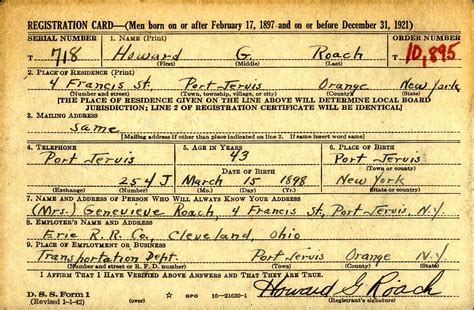 REGISTRATION CARD—(Men born on or after February 17, 1897 and on or before December 31, 1921)
SERIAL NUMBER 1. NAME (Print) ORDER NUMBER
T 718 Howard G. Roach T 10,895
(First) (Middle) (Last)
2. PLACE OF RESIDENCE (Print)
4 Francis St. Port Jervis Orange New York
(Number and street) (Town, township, village, or city) (County) (State)
[THE PLACE OF RESIDENCE GIVEN ON THE LINE ABOVE WILL DETERMINE LOCAL BOARD
JURISDICTION; LINE 2 OF REGISTRATION CERTIFICATE WILL BE IDENTICAL]
3. MAILING ADDRESS
Same
[Mailing address if other than place indicated on line 2. If same insert word same]
4. TELEPHONE 5. AGE IN YEARS 6. PLACE OF BIRTH
Port Jervis 43 Port Jervis
DATE OF BIRTH (Town or county)
254 J March 15 1898 New York
(Exchange) (Number) (Mo.) (Day) (Yr.) (State or country)
7. NAME AND ADDRESS OF PERSON WHO WILL ALWAYS KNOW YOUR ADDRESS
(Mrs.) Genevieve Roach, 4 Francis St, Port Jervis, N.Y.
8. EMPLOYER'S NAME AND ADDRESS
Erie R. R. Co., Cleveland, Ohio
9. PLACE OF EMPLOYMENT OR BUSINESS
Transportation Dept. Port Jervis Orange N.Y.
(Number and street or R. F. D. number) (Town) (County) (State)
I AFFIRM THAT I HAVE VERIFIED ABOVE ANSWERS AND THAT THEY ARE TRUE.
D. S. S. Form 1 Howard G Roach
(Revised 1-1-42) (over) GPO 16—21630-1 (Registrant's signature)